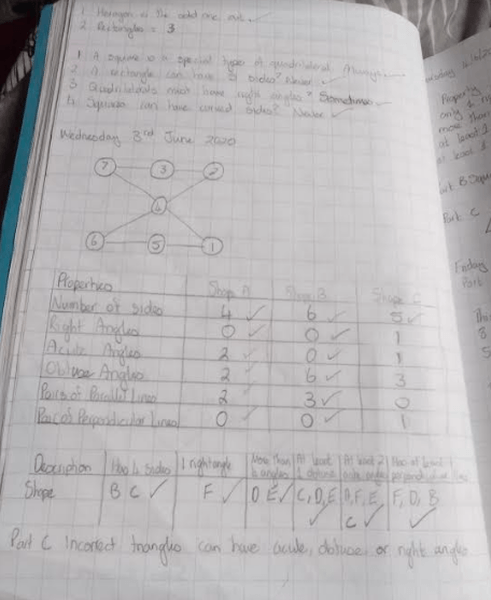 1 Hexagon is the odd one out.
2 Rectangles = 3
1 A square is a special type of quadrilateral. Always
2 A rectangle can have 3 sides? Never
3 Quadrilaterals must have right angles? Sometimes
4 Squares can have curved sides? Never
Wednesday 3rd June 2020
7 3 2
6 5 1
Properties Shape A Shape B Shape C
Number of sides 4 6 5
Right Angles 0 0 1
Acute Angles 2 0 1
Obtuse Angles 2 6 3
Pairs of Parallel Lines 2 3 0
Pairs of Perpendicular Lines 0 0 1
Description Has 4 sides 1 right angle More than angles At least 1 obtuse At least 2 Has at least 1 perpendicular line
Shape B C F D E C, D, E A, F, E C F, D, B
Part C Incorrect triangles can have acute, obtuse or right angles
Property
only 1
more than
at least 1
at least
Part B
Part C
Friday
Part